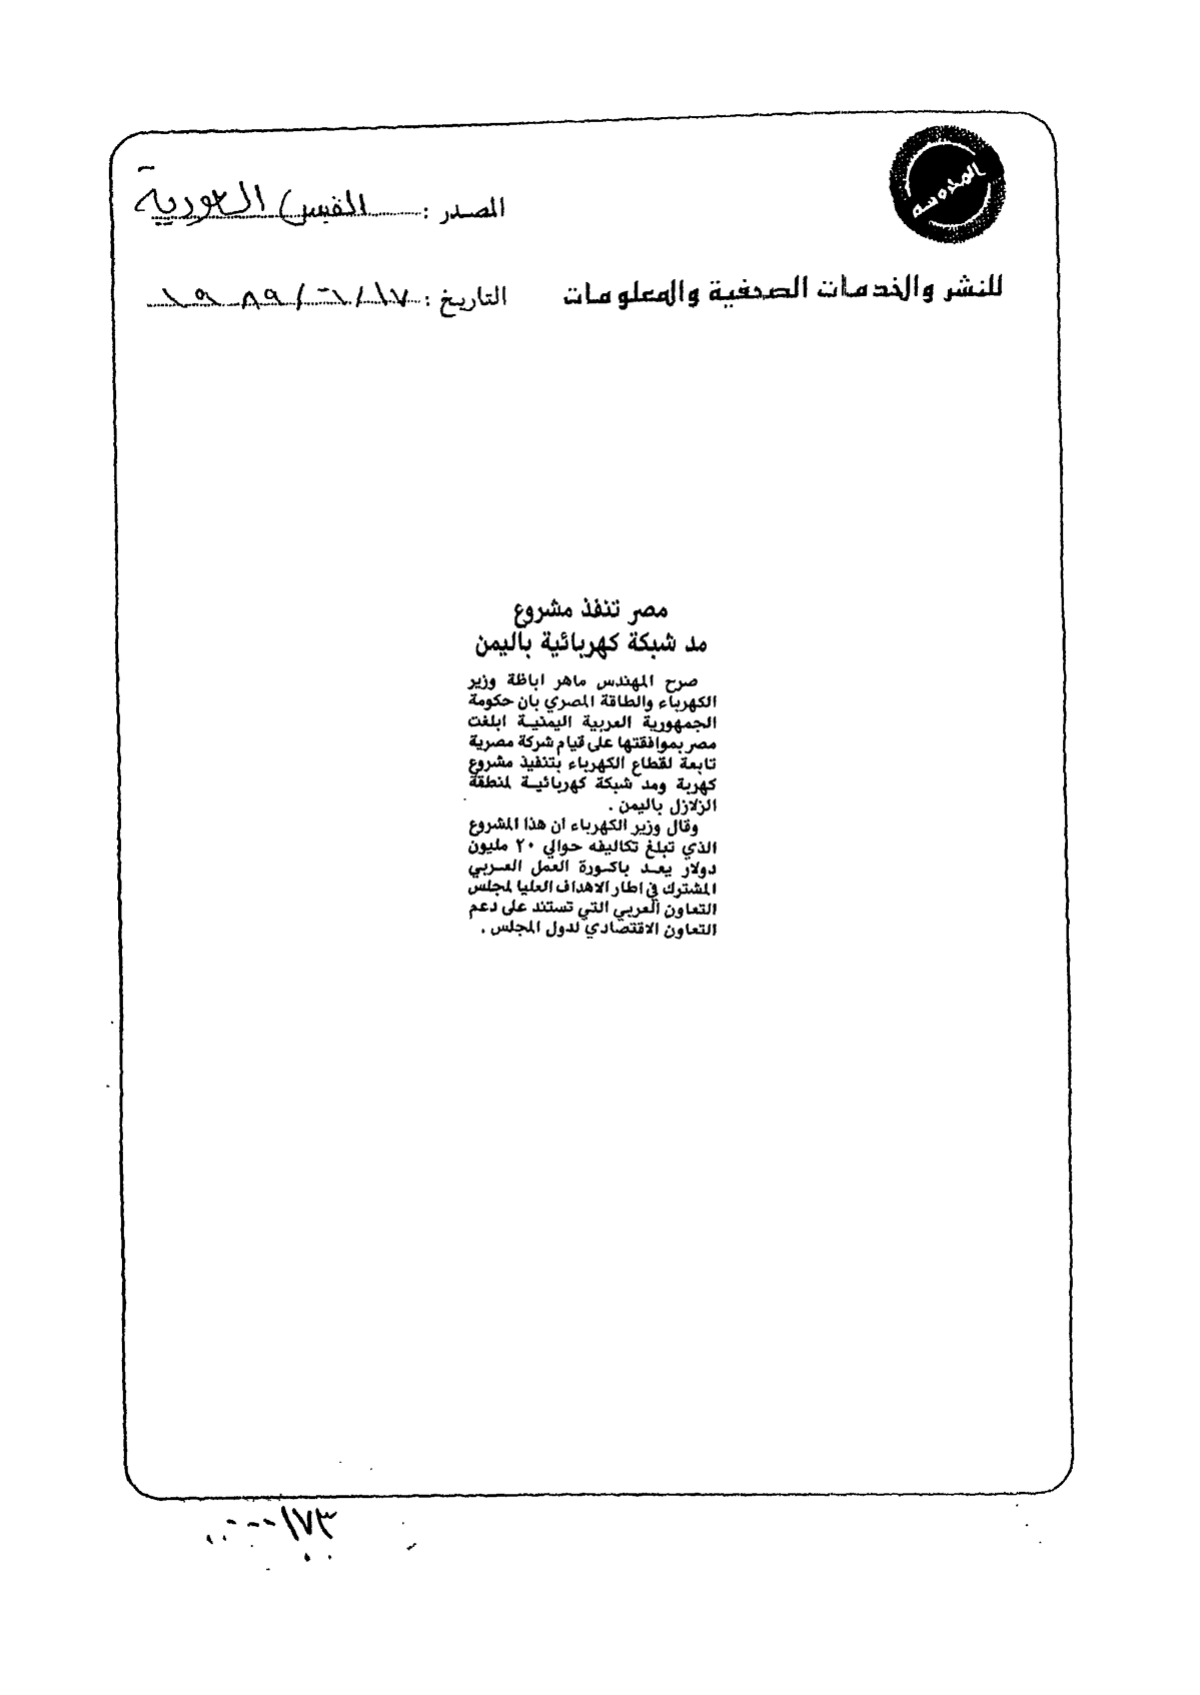 المصدر : القبس الدورية
للنشر والخدمات الصحفية والمعلومات
التاريخ : ١٧/٦/١٩٨٩
مصر تنفذ مشروع
مد شبكة كهربائية باليمن
صرح المهندس ماهر اباظة وزير
الكهرباء والطاقة المصري بان حكومة
الجمهورية العربية اليمنية ابلغت
مصر بموافقتها على قيام شركة مصرية
تابعة لقطاع الكهرباء بتنفيذ مشروع
كهربة ومد شبكة كهربائية لمنطقة
الزلازل باليمن .
وقال وزير الكهرباء ان هذا المشروع
الذي تبلغ تكاليفه حوالي ٢٠ مليون
دولار يعد باكورة العمل العربي
المشترك في اطار الاهداف العليا لمجلس
التعاون العربي التي تستند على دعم
التعاون الاقتصادي لدول المجلس .